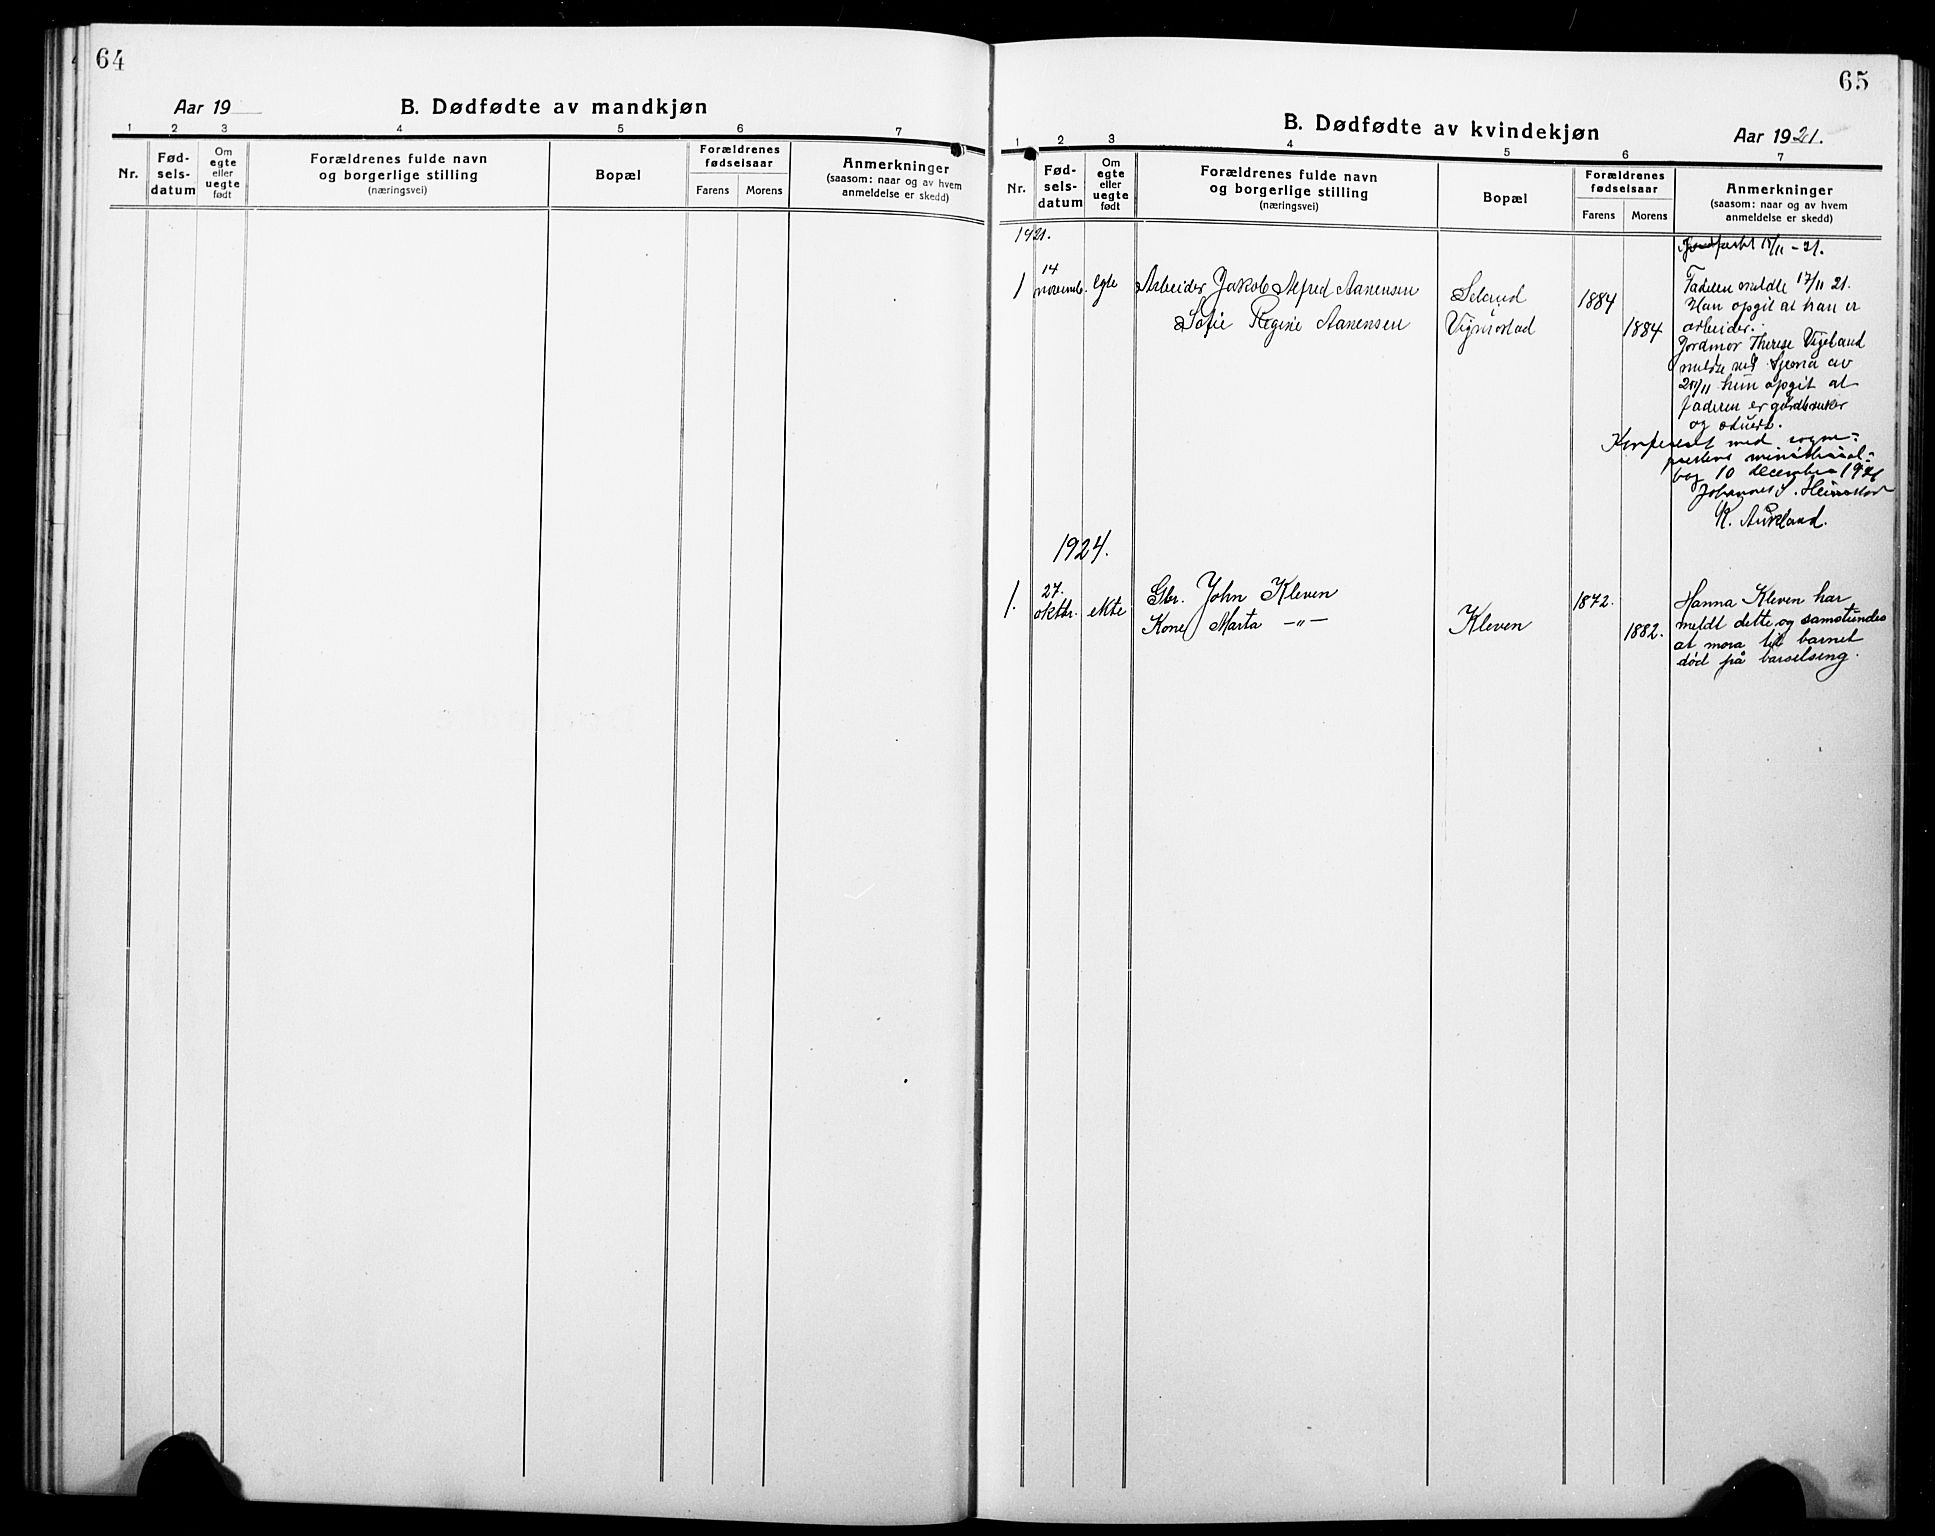 64
Aar 19
B. Dødfødte av mandkjøn
1 2 3 4 5 6 7
Nr.
Fød-
sels-
datum
Om
egte
eller
uegte
født
Forældrenes fulde navn
og borgerlige stilling
(næringsvei)
Bopæl
Forældrenes
fødselsaar
Farens Morens
Anmerkninger
(saasom: naar og av hvem
anmeldelse er skedd)
65
B. Dødfødte av kvindekjøn
Aar 1921.
1 2 3 4 5 6 7
Nr.
Fød-
sels-
datum
Om
egte
eller
uegte
født
Forældrenes fulde navn
og borgerlige stilling
(næringsvei)
Bopæl
Forældrenes
fødselsaar
Farens Morens
Anmerkninger
(saasom: naar og av hvem
anmeldelse er skedd)
1921.
/11 - 21.
1
14
novemb. egte
Arbeider Jakob Alfred Aanensen
Sofie Regine Aanensen
Vigmostad
1884
1884
Faderen meldte 17/11 21.
Han opgit at han er
arbeider.
Jordmor Therese Vigeland
meldte ved av
/11 hun opgit at
faderen er gårdbruker
og
Konferert med sogne-
prestens ministerial-
bog 10 december 1921
Johannes
K. Aukland.
1924.
1.
27.
oktbr. ekte
Gbr. John Kleven
Kone Marta -"-
Kleven
1872.
1882.
Hanna Kleven har
meldt dette og samstundes
at mora til barnet
død på barselseng.